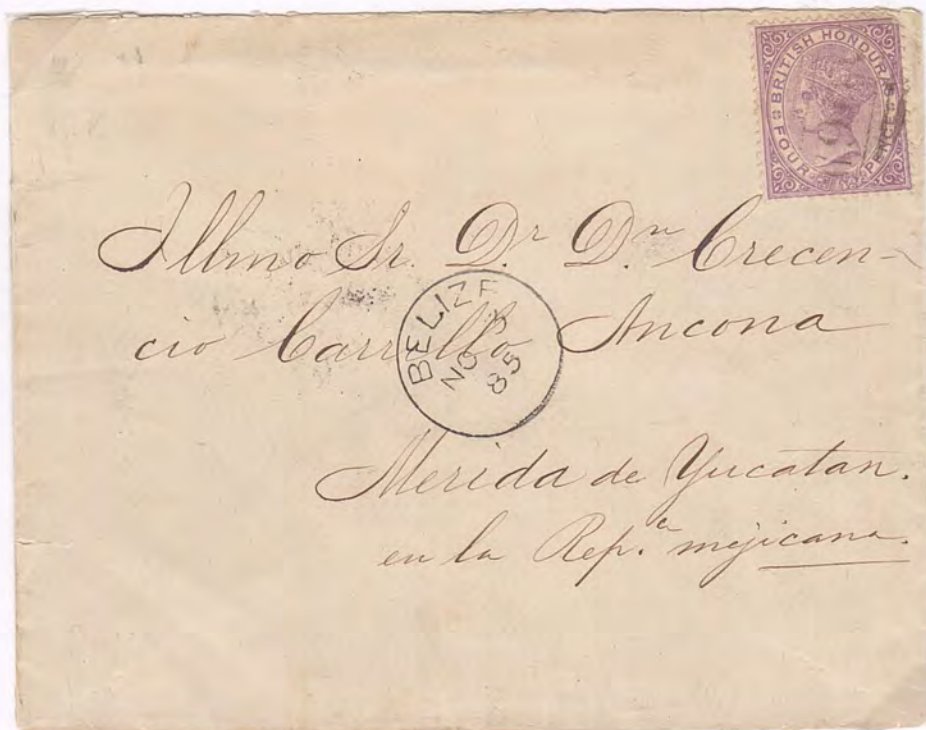 BRITISH HONDURAS
FOUR PENCE
Illmo Sr. Dr. Dn. Crecen-
cio Carrillo Ancona
BELIZE
NO
85
Merida de Yucatan.
en la Rep.ca mejicana.